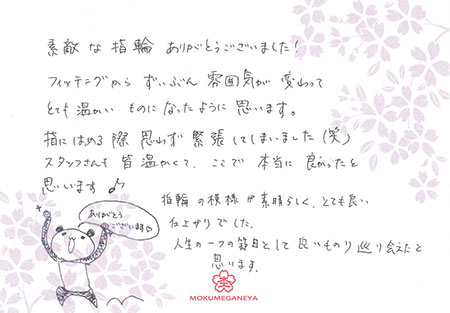 素敵な指輪 ありがとうございました!
フィッティングから ずいぶん 雰囲気が 変わって
とても温かい ものに なったように 思います。
指にはめる際 思わず 緊張してしまいました (笑)
スタッフさんも 皆 温かくて、ここで 本当に 良かったと
思います♪
ありがとう
ございます♡
指輪の模様が素晴らしく、とても良い
仕上がりでした。
人生の一つの節目として 良いものに巡り会えたと
思います。
MOKUMEGANEYA